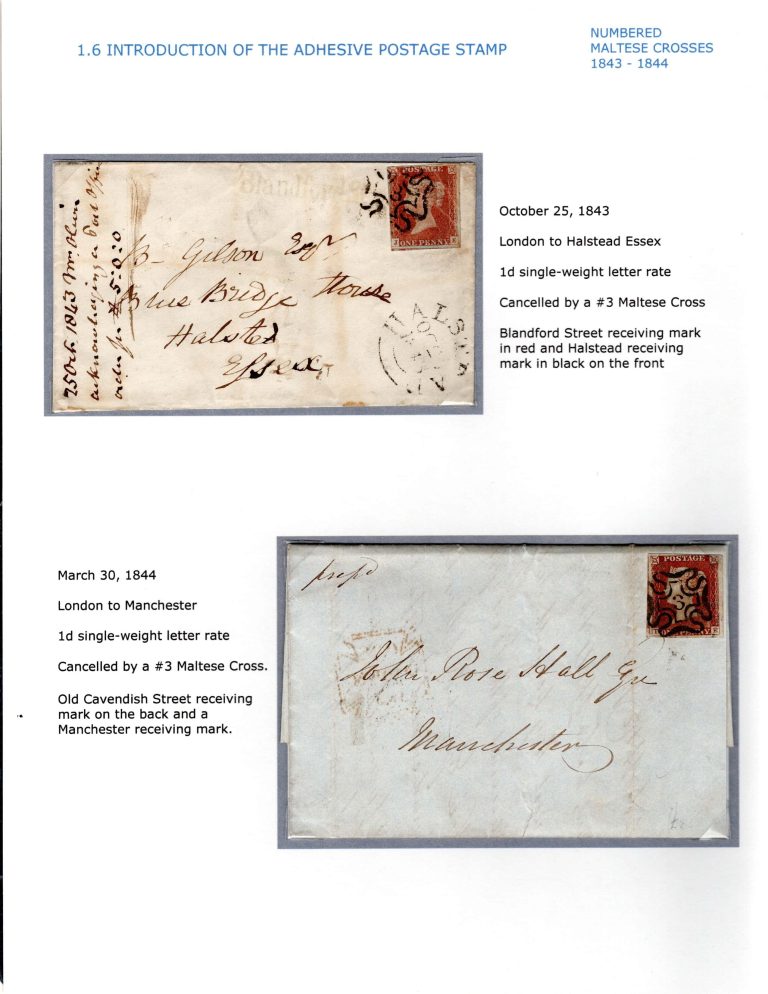 1.6 INTRODUCTION OF THE ADHESIVE POSTAGE STAMP
NUMBERED
MALTESE CROSSES
1843 - 1844
25 Oct 1843 Mrs
acknowledging a Post Office
order for £5:0:0
Blandford
POSTAGE
ONE PENNY
B Gilson Esqr
Blue Bridge House
Halsted
Essex
HALSTEAD
October 25, 1843
London to Halstead Essex
1d single-weight letter rate
Cancelled by a #3 Maltese Cross
Blandford Street receiving mark
in red and Halstead receiving
mark in black on the front
March 30, 1844
London to Manchester
1d single-weight letter rate
Cancelled by a #3 Maltese Cross.
Old Cavendish Street receiving
mark on the back and a
Manchester receiving mark.
prepd
POSTAGE
3
John Rose Hall Esqre
Manchester